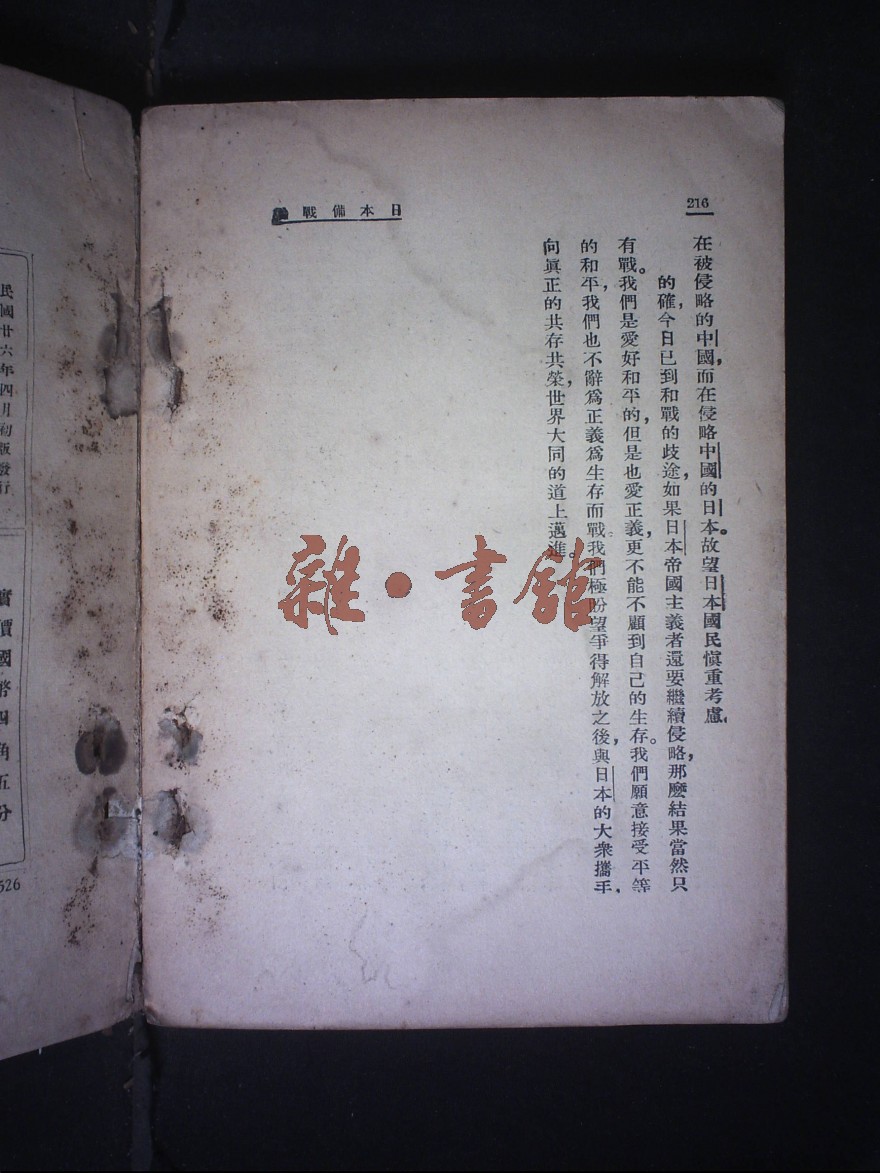 216
日本備戰
在被侵略的中國，而在侵略中國的日本。故望日本國民愼重考慮。
的確，今日已到和戰的歧途，如果日本帝國主義者還要繼續侵略，那麽結果當然只
有戰。我們是愛好和平的，但是也愛正義，更不能不顧到自己的生存。我們願意接受平等
的和平，我們也不辭爲正義爲生存而戰。我們極盼望爭得解放之後，與日本的大衆攜手，
向眞正的共存共榮，世界大同的道上邁進。
雜·書館
民國廿六年四月初版發行
實價國幣四角五分
526